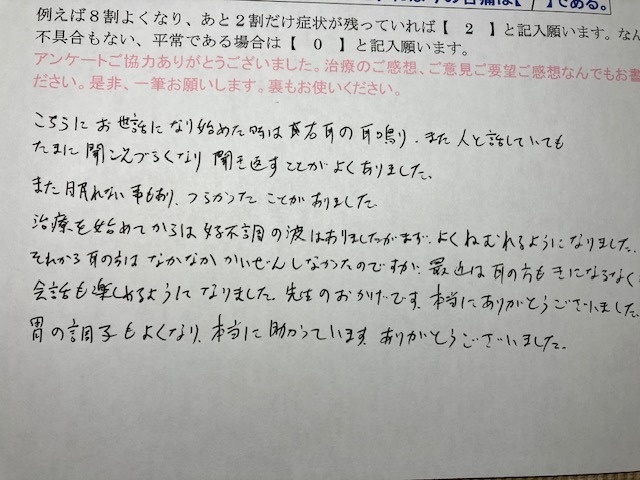 の苦痛は【 / 】である。
例えば8割よくなり、あと2割だけ症状が残っていれば【 2 】と記入願います。なん
不具合もない、平常である場合は【 0 】と記入願います。
アンケートご協力ありがとうございました。治療のご感想、ご意見ご要望ご感想なんでもお書
ださい。是非、一筆お願いします。裏もお使いください。
こちらに お世話になり始めた時は 右耳の耳鳴り、また 人と話していても
たまに 聞こえづらくなり 聞き返すことがよくありました。
また 眠れない事もあり、つらかった ことがありました
治療を始めてからは 好不調の波はありましたが まず、よくねむれるようになりました。
それから 耳の方は なかなか かいぜんしなかったのですが、最近は 耳の方も きにならなく
会話も楽しめるように なりました。先生のおかげです。本当にありがとうございました。
胃の調子もよくなり、本当に助かっています。ありがとうございました。